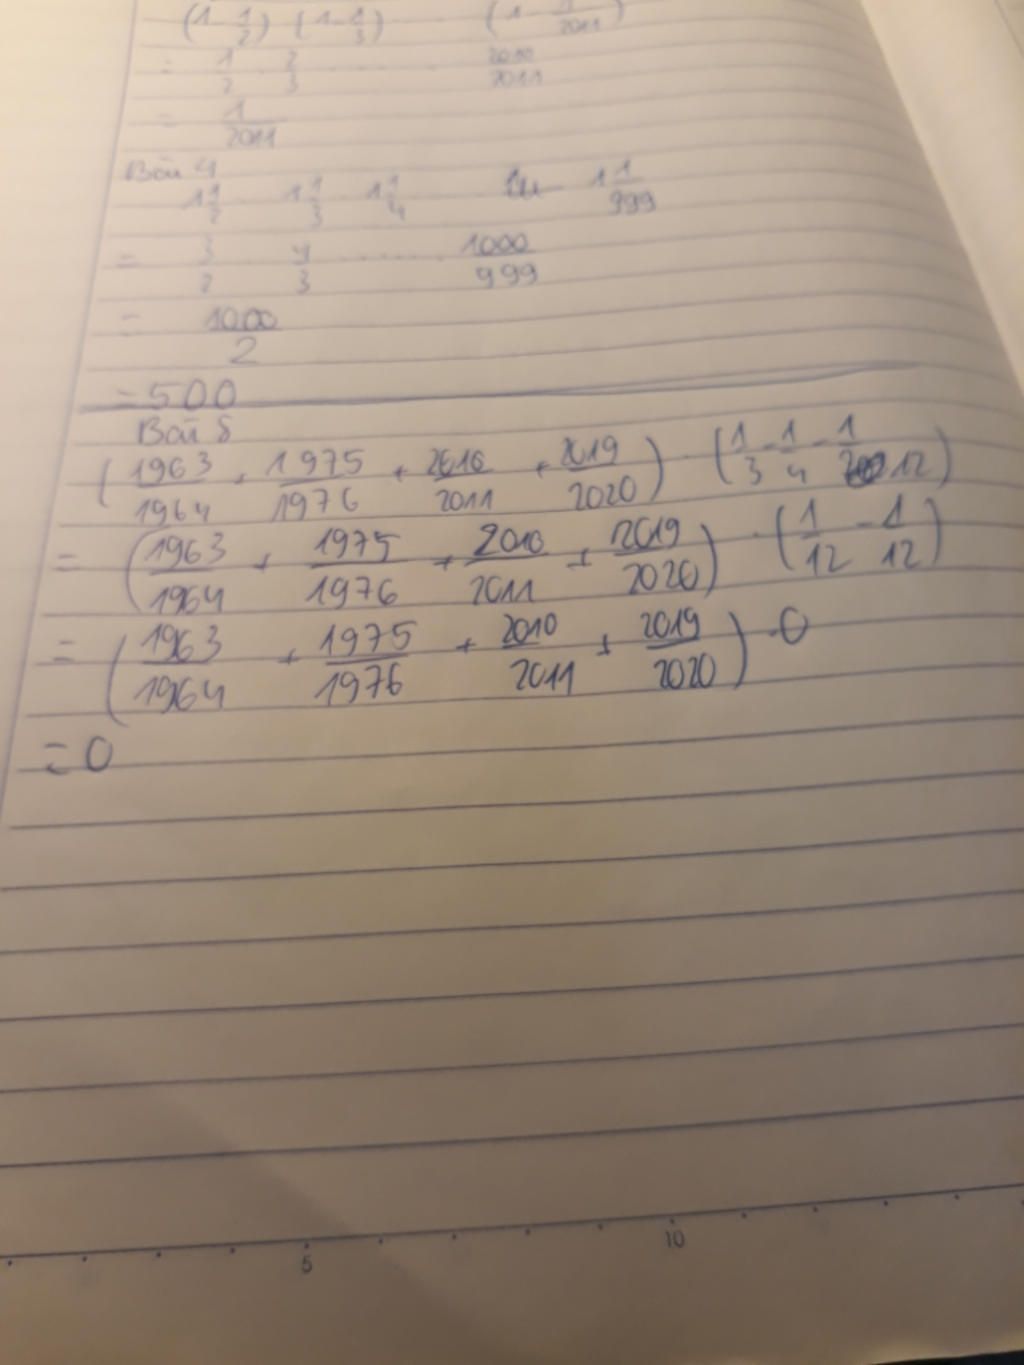 (1-1/2) (1-1/3) ........ (1-1/2011)
= 1/2 . 2/3 ........ 2010/2011
= 1/2011
Bài 4
1 1/2 . 1 1/3 . 1 1/4 1 1/999
= 3/2 4/3 ........ 1000/999
= 1000/2
= 500
Bài 5
(1963/1964 + 1975/1976 + 2010/2011 + 2019/2020) . (1/3 - 1/4 - 1/12)
= (1963/1964 + 1975/1976 + 2010/2011 + 2019/2020) . (1/12 - 1/12)
= (1963/1964 + 1975/1976 + 2010/2011 + 2019/2020) . 0
= 0
5 10